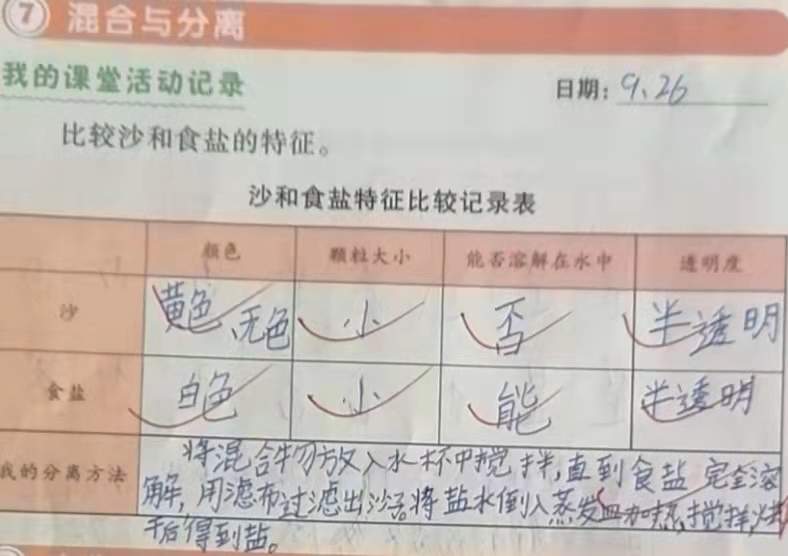 7 混合与分离
我的课堂活动记录
日期: 9.26
比较沙和食盐的特征。
沙和食盐特征比较记录表
颜色 颗粒大小 能否溶解在水中 透明度
沙 黄色 无色 小 否 半透明
食盐 白色 小 能 半透明
我的分离方法 将混合物放入水杯中搅拌,直到食盐完全溶
解,用滤布过滤出沙。将盐水倒入蒸发皿加热,搅拌,烘
干后得到盐。